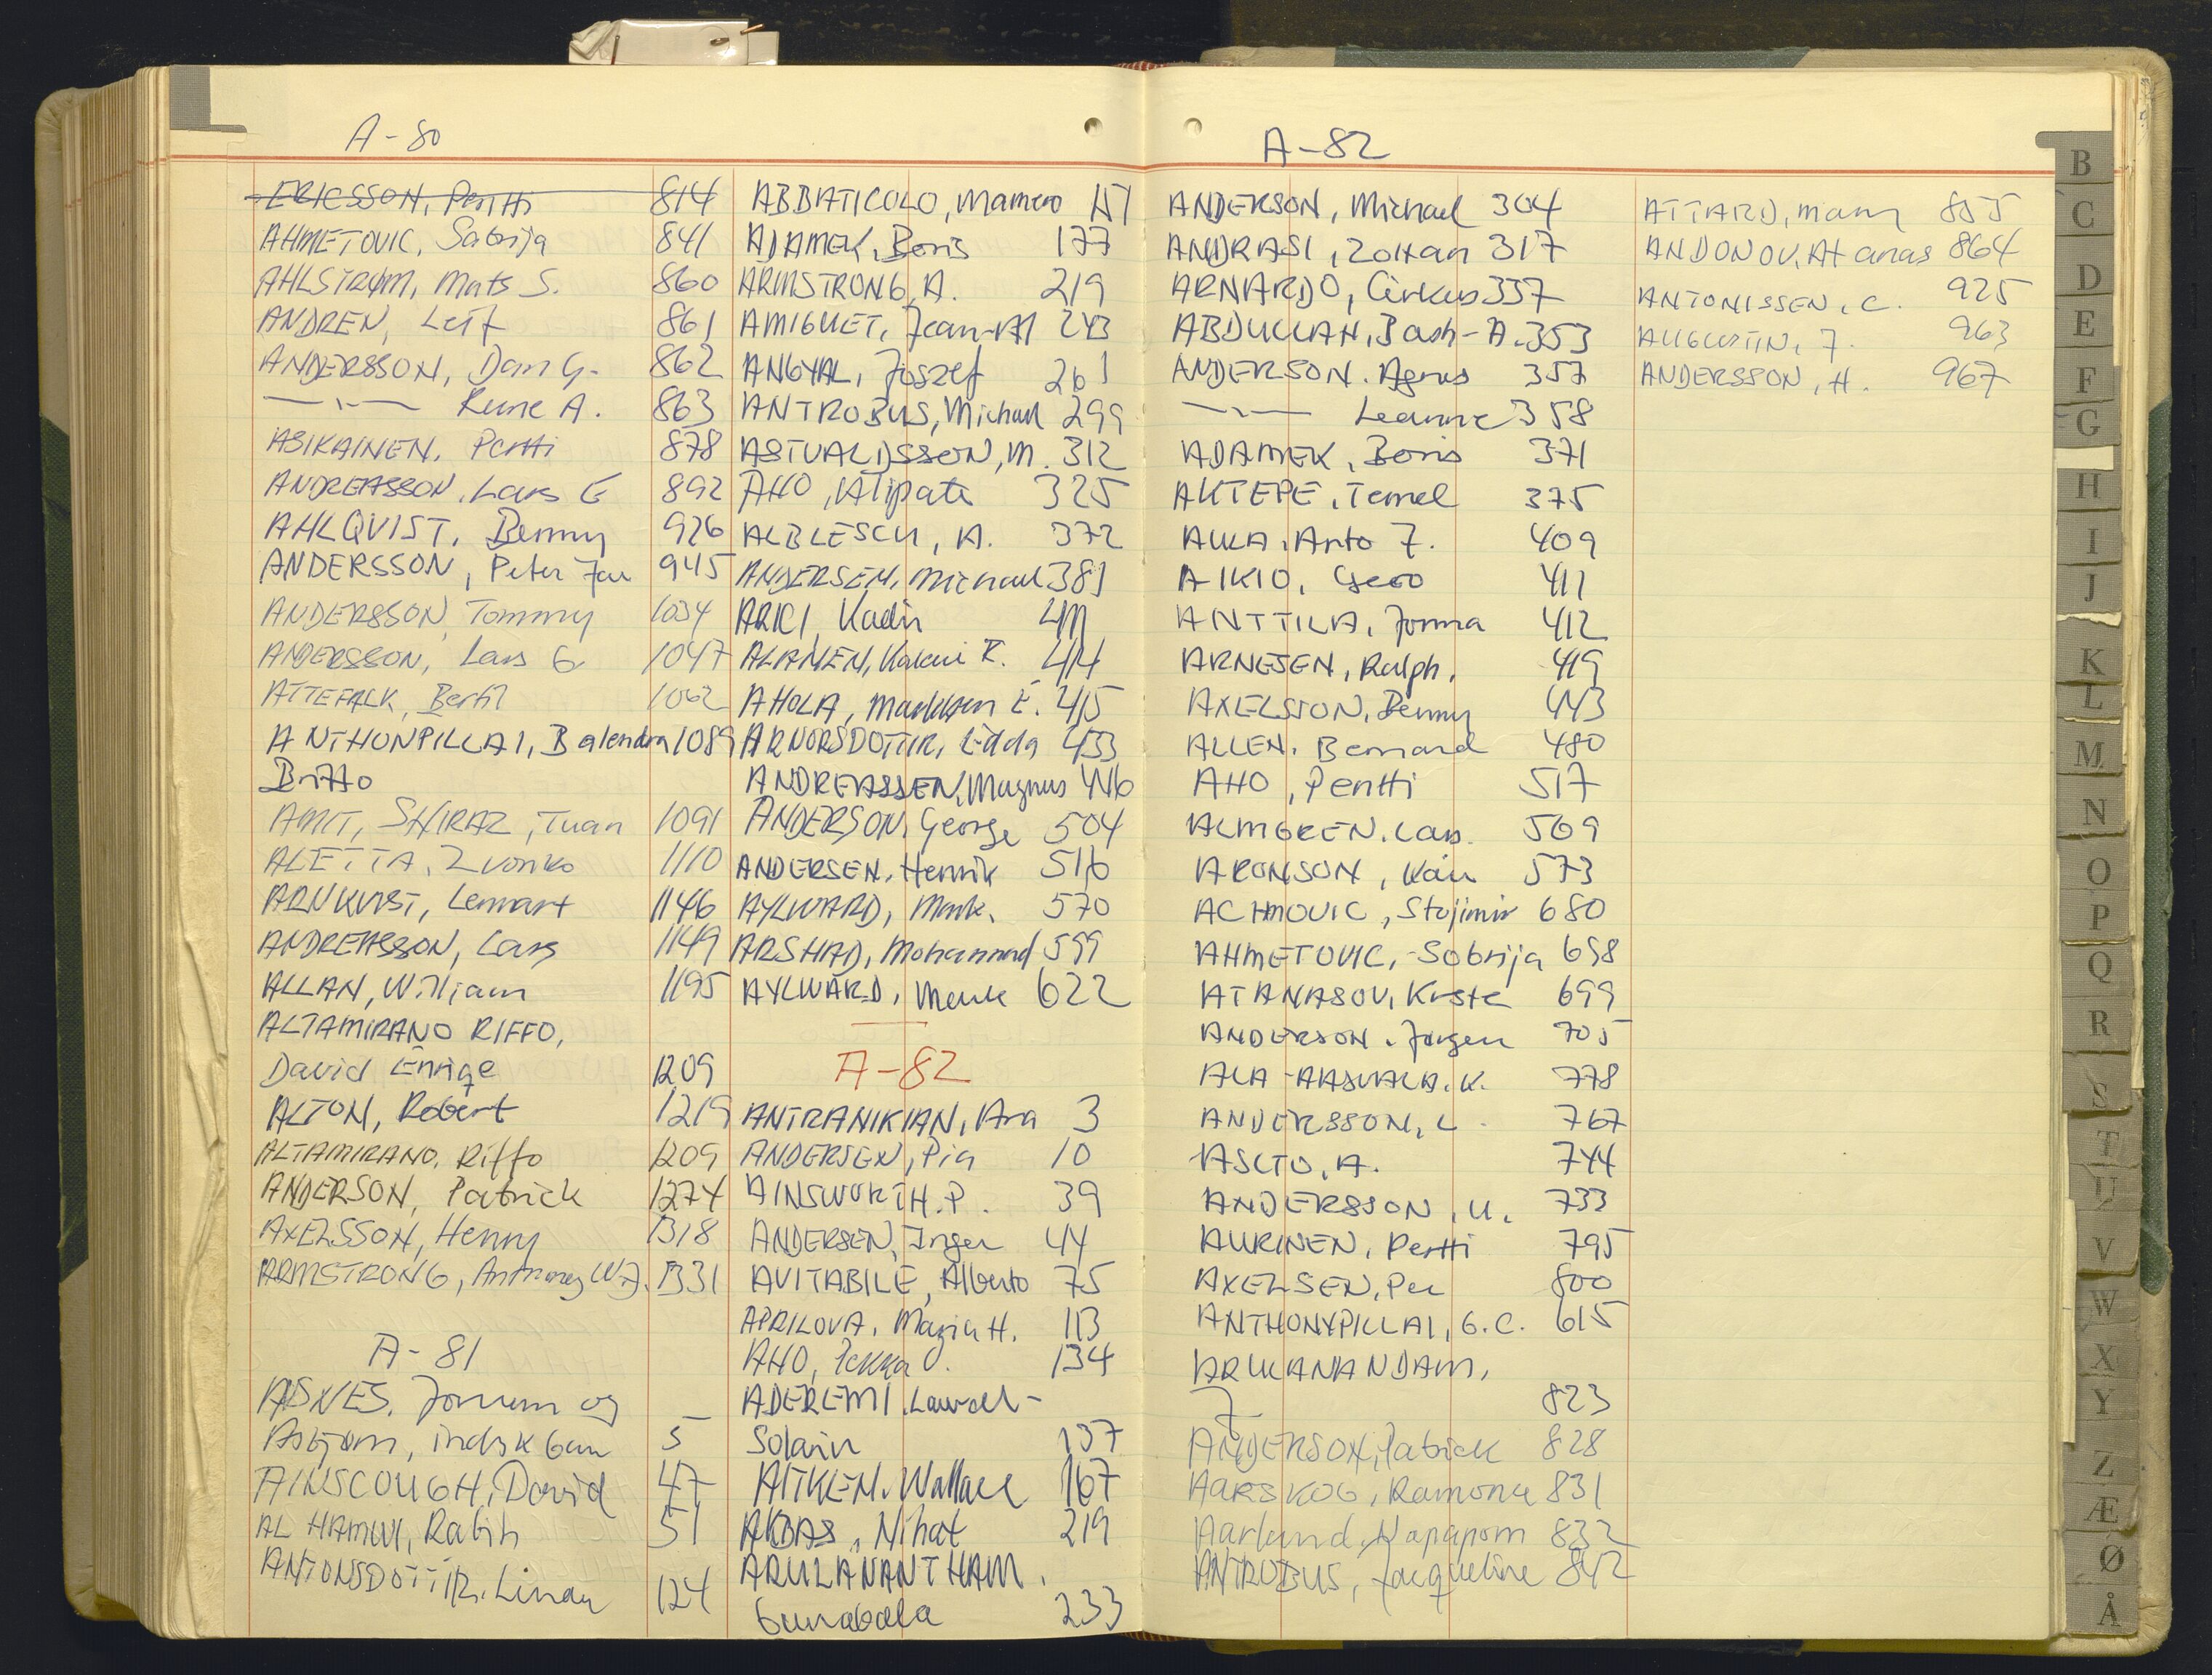 A-80
ERICSSON, Pertti 814
AHMETOVIC, Sabrija 841
AHLSTRØM, Mats S. 860
ANDREN, Leif 861
ANDERSSON, Dan G. 862
—"— Rune A. 863
ASIKAINEN, Pertti 878
ANDREASSON, Lars E 892
AHLQVIST, Benny 926
ANDERSSON, Peter Jan 945
ANDERSSON, Tommy 1034
ANDERSSON, Lars G 1047
ATTEFALK, Bertil 1062
ANTHONPILLAI, Balendra 1089
Britto
AMIT, SHIRAZ, Tuan 1091
ALETTA, Zvonko 1110
ARNKVIST, Lennart 1146
ANDREASSON, Lars 1149
ALLAN, William 1195
ALTAMIRANO RIFFO,
David Enrige 1209
ALTON, Robert 1219
ALTAMIRANO, Riffo 1209
ANDERSON, Patrick 1274
AXELSSON, Henry 1318
ARMSTRONG, Anthony W.J. 1331
A-81
ASNES, Jorunn og
Asbjørn, indsk barn 5
AINSCOUGH, David 47
AL HAMWI, Rabih 51
ANTONSDOTTIR, Linda 124
ABBATICOLO, Mamero 151
ADAMEK, Boris 177
ARMSTRONG, A. 219
AMIGUET, Jean-Al 243
ANGYAL, Joszef 261
ANTROBUS, Michael 299
ASTVALDSSON, M. 312
AHO, Atipate 325
ALBLESCH, A. 372
ANDERSEN, Michael 381
ARICI, Kadir 411
ALANEN, Kalevi K. 414
AHOLA, Markken E. 415
ARNORSDOTTIR, Edda 433
ANDREASSEN, Magnus 446
ANDERSON, George 504
ANDERSEN, Henrik 516
AYLWARD, Mark. 570
ARSHAD, Mohammad 599
AYLWARD, Mark 622
A-82
ANTRANIKIAN, Ara 3
ANDERSEN, Pia 10
AINSWORTH. P. 39
ANDERSEN, Inger 44
AVITABILE, Alberto 75
APRILOVA, Mazia H. 113
AHO, Pekka O. 134
ADEREMI, Lawal-
Solarin 137
AITKEN, Wallace 167
AKBAS, Nihat 219
ARULANANTHAM,
Gunabala 233
A-82
ANDERSON, Michael 304
ANDRASI, Zoltan 317
ARNARDO, Cirkus 337
ABDULLAH, Bash-A. 353
ANDERSON. Agnus 357
—"— Leanne 358
ADAMEK, Boris 371
AKTEPE, Temel 375
ALLA, Arto J. 409
AIKIO, Gero 411
ANTTILA, Jorma 412
ARNESEN, Ralph. 419
AXELSSON, Benny 443
ALLEN, Bernard 480
AHO, Pentti 517
ALMGREN, Lars. 569
ARONSON, Kari 573
ACHMOVIC, Stojimir 680
AHMETOVIC, Sobrija 698
ATANASOV, Krste 699
ANDERSON, Jørgen 705
ALA-AASVALA, K. 778
ANDERSSON, L. 767
ASLTO, A. 744
ANDERSSON, U. 733
AURINEN, Pertti 795
AXELSEN, Per 800
ANTHONYPILLAI, G.C. 615
ARULANANDAM,
J 823
ANDERSON, Patrick 828
AARSKOG, Ramona 831
Aarlund, Napaporn 832
ANTROBUS, Jacqueline 842
ATTARD, Mary 855
ANDONOV, Atanas 864
ANTONISSEN, C. 925
AUGUSTIN, J. 963
ANDERSSON, H. 967
B
C
D
E
F
G
H
I
J
K
L
M
N
O
P
Q
R
S
T
U
V
W
X
Y
Z
Æ
Ø
Å